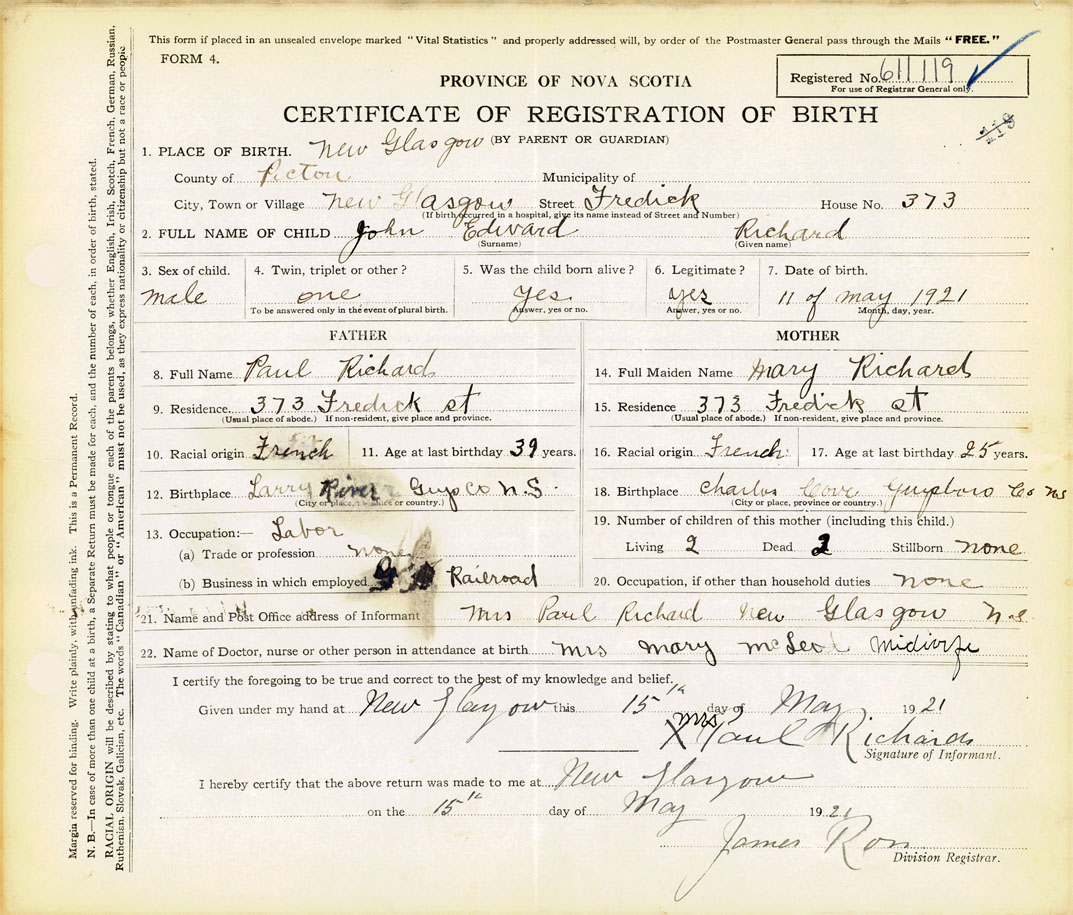 This form if placed in an unsealed envelope marked "Vital Statistics" and properly addressed will, by order of the Postmaster General pass through the Mails "FREE."
FORM 4.
Registered No. 611119
For use of Registrar General only.
PROVINCE OF NOVA SCOTIA
CERTIFICATE OF REGISTRATION OF BIRTH
119
(BY PARENT OR GUARDIAN)
1. PLACE OF BIRTH. New Glasgow
County of Picton Municipality of
City, Town or Village New Glasgow Street Fredick House No. 373
(If birth occurred in a hospital, give its name instead of Street and Number)
2. FULL NAME OF CHILD John Edward Richard
(Surname) (Given name)
3. Sex of child. 4. Twin, triplet or other? 5. Was the child born alive? 6. Legitimate? 7. Date of birth.
male one yes yes 11 of may 1921
To be answered only in the event of plural birth. Answer, yes or no. Answer, yes or no. Month, day, year.
FATHER MOTHER
8. Full Name Paul Richard 14. Full Maiden Name Mary Richard
9. Residence 373 Fredick st 15. Residence 373 Fredick st
(Usual place of abode.) If non-resident, give place and province. (Usual place of abode.) If non-resident, give place and province.
10. Racial origin French 11. Age at last birthday 39 years. 16. Racial origin French 17. Age at last birthday 25 years.
12. Birthplace Larry River Guysco N.S. 18. Birthplace Charlos Cove Guysboro Co NS
(City or place, province or country.) (City or place, province or country.)
13. Occupation:— Labor 19. Number of children of this mother (including this child.)
(a) Trade or profession none Living 2 Dead 2 Stillborn none
(b) Business in which employed Railroad 20. Occupation, if other than household duties none
21. Name and Post Office address of Informant Mrs Paul Richard New Glasgow N.S.
22. Name of Doctor, nurse or other person in attendance at birth Mrs Mary McLeod Midwife
I certify the foregoing to be true and correct to the best of my knowledge and belief.
Given under my hand at New Glasgow this 15th day of May 1921
X Mrs Paul Richards
Signature of Informant.
I hereby certify that the above return was made to me at New Glasgow
on the 15th day of May 1921
James Ron
Division Registrar.
Margin reserved for binding. Write plainly, with unfading ink. This is a Permanent Record.
N. B.—In case of more than one child at a birth, a Separate Return must be made for each, and the number of each, in order of birth, stated.
RACIAL ORIGIN will be described by stating to what people or tongue each of the parents belongs, whether English, Irish, Scotch, French, German, Russian,
Ruthenian, Slovak, Galician, etc. The words "Canadian" or "American" must not be used, as they express nationality or citizenship but not a race or people